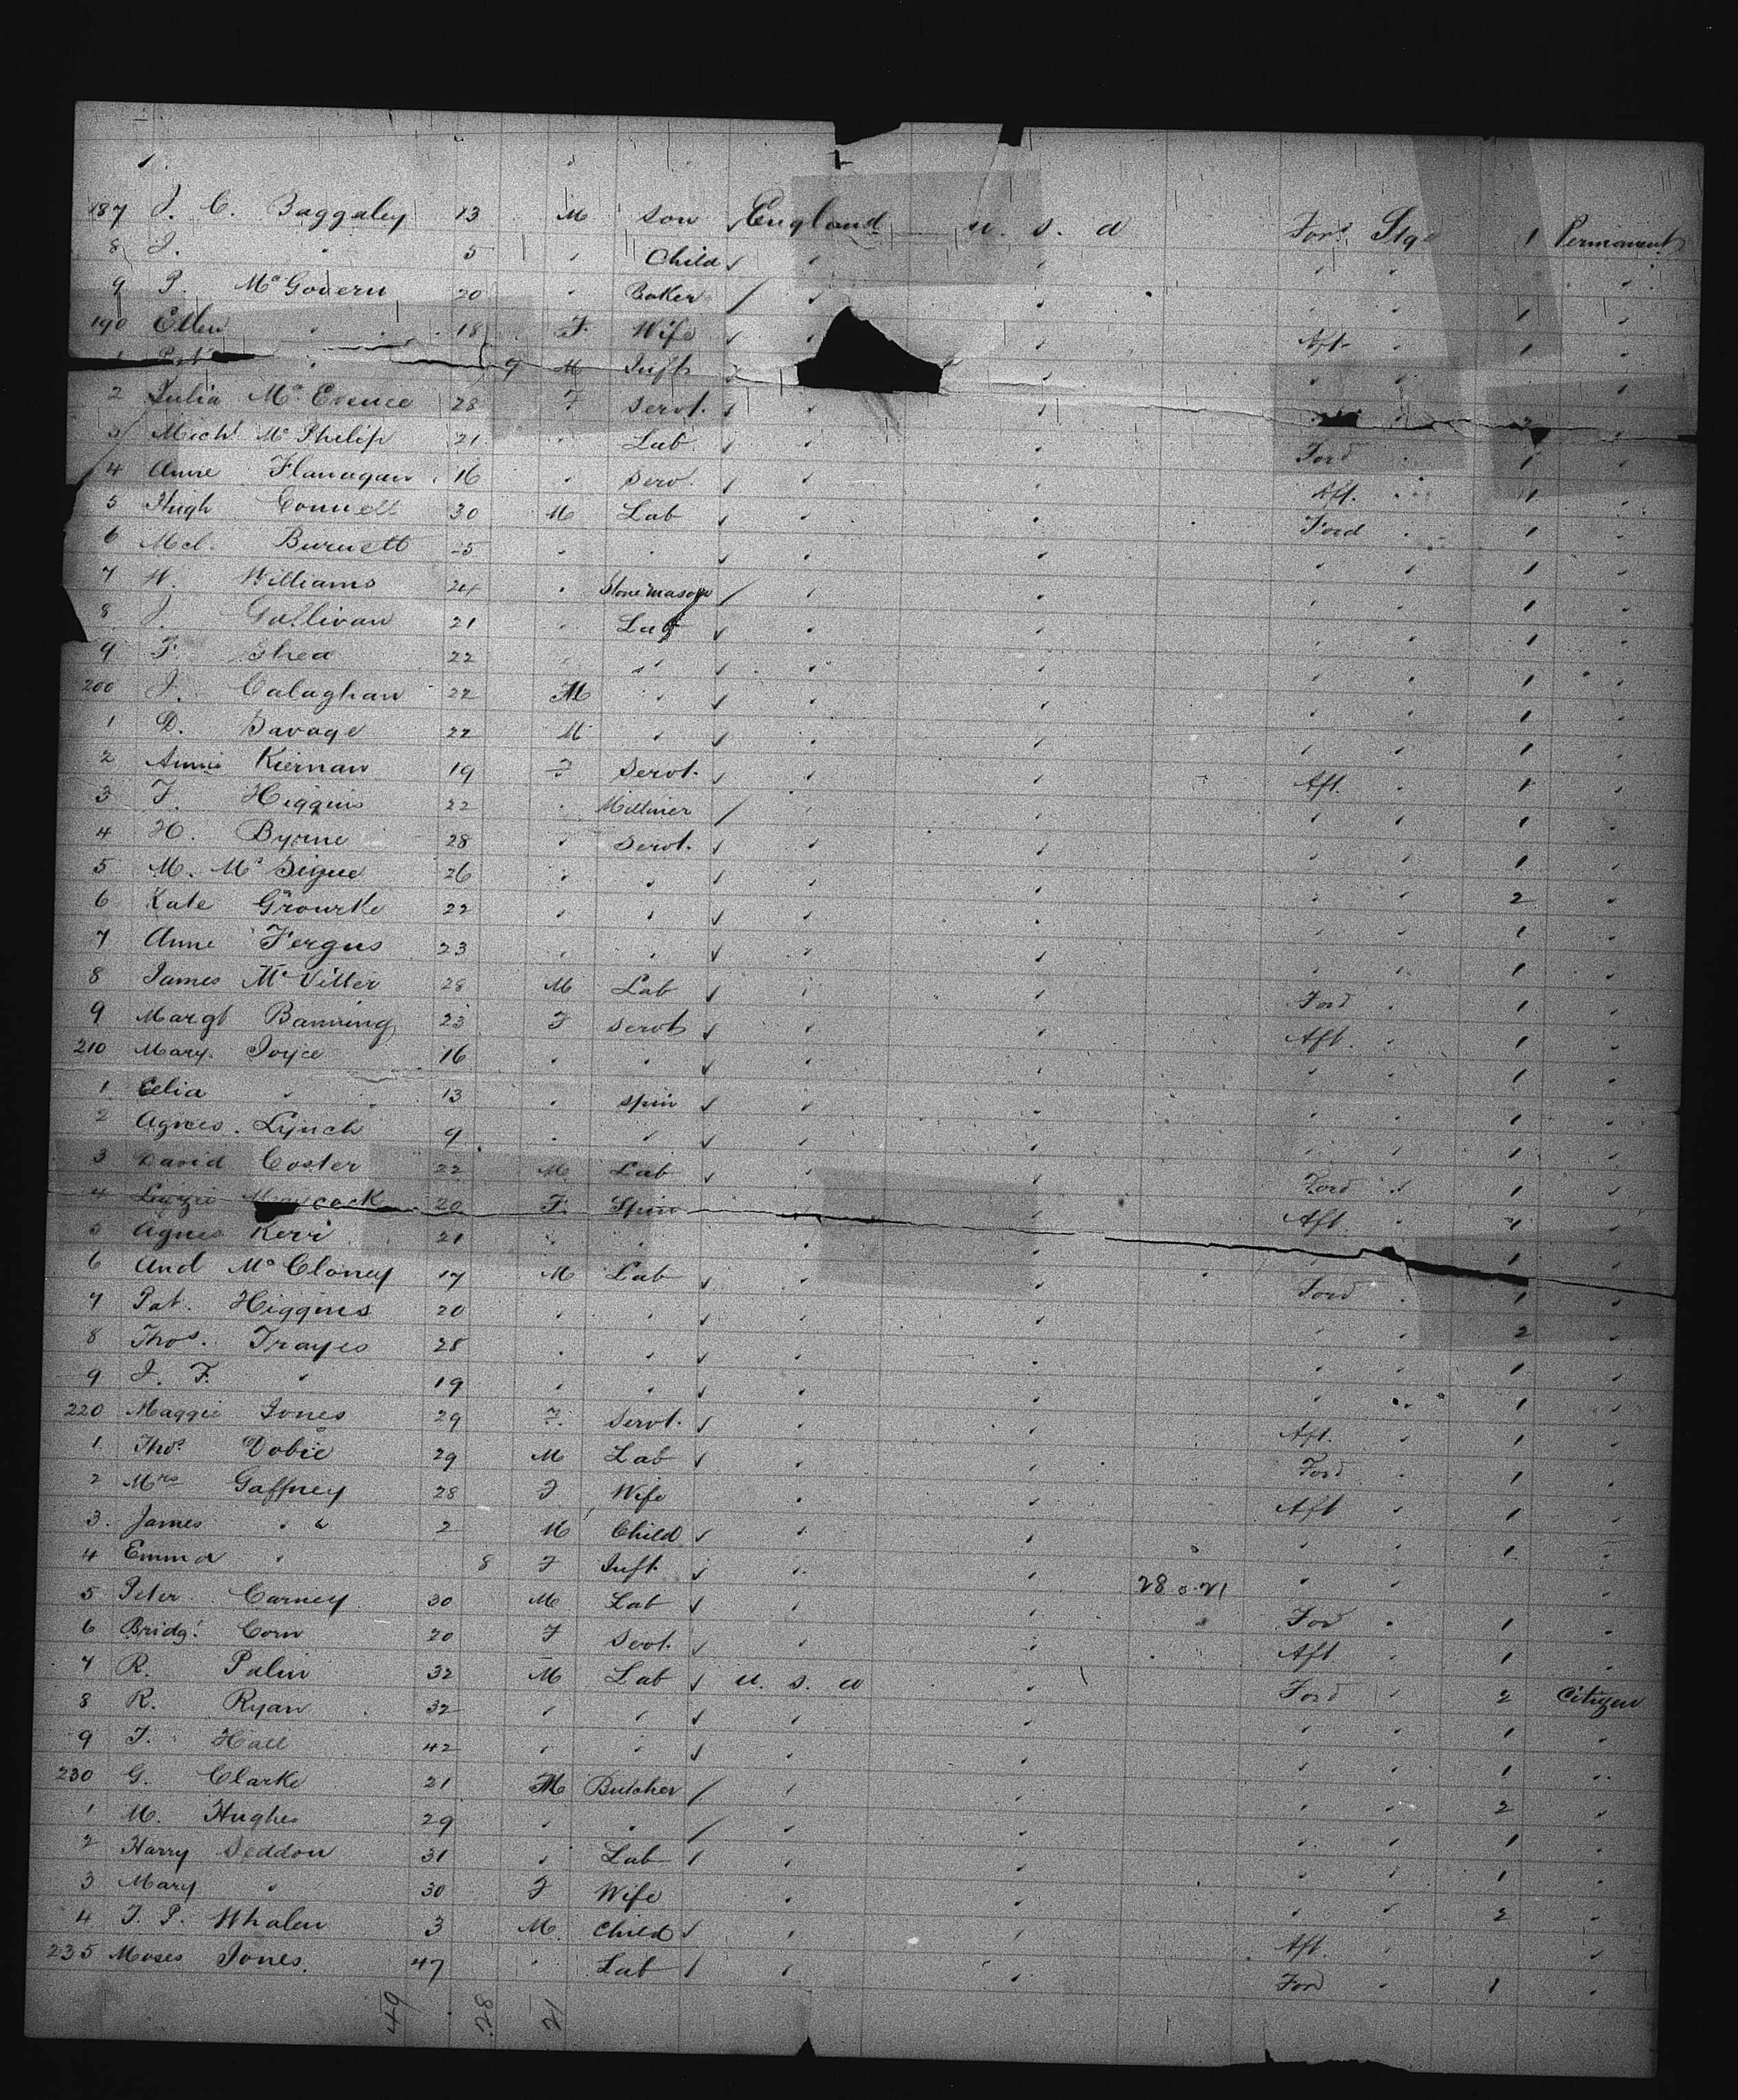 187 J. C. Baggaley 13 M Son England U. S. A Ford Stge 1 Permanent
8 J. " 5 " Child " " " " "
9 P. McGovern 20 " Baker " " " " 1 "
190 Ellen " 18 F Wife " " Aft " 1 "
1 Pat " 9 M Inft " " " " "
2 Julia McEvence 28 F Servt. " "
3 Michl McPhilip 21 " Lab " " Ford " 1 "
4 Anne Flanagan 16 " Serv. " " Aft. " 1 "
5 Hugh Connell 30 M Lab " " Ford " 1 "
6 Mcl. Burnett 25 " " " " " " 1 "
7 W. Williams 24 " Stonemason " " " " 1 "
8 J. Gullivan 21 " Lab " " " " 1 "
9 F. Shea 22 " " " " " " 1 "
200 J. Calaghan 22 M " " " " " 1 "
1 D. Savage 22 M " " " " " 1 "
2 Annie Kiernan 19 F Servt. " " Aft. " 1 "
3 F. Higgins 22 " Milliner " " " " 1 "
4 H. Byrne 28 " Servt. " " " " 1 "
5 M. Mc 26 " " " " " " 2 "
6 Kate Grourke 22 " " " " " " 1 "
7 Anne Fergus 23 " " " " " " 1 "
8 James McVitter 28 M Lab " " Ford " 1 "
9 Margt Banning 23 F Servt " " Aft. " 1 "
210 Mary Joyce 16 " " " " " " 1 "
1 Celia " 13 " Spin " " " " 1 "
2 Agnes Lynch 9 " " " " " " 1 "
3 David Coster 22 M Lab " " Ford " 1 "
4 Lizzie 20 F Spin " Aft. " 1 "
5 Agnes Kerr 21 " " " " " " 1 "
6 And McCloney 17 M Lab " " Ford " 1 "
7 Pat. Higgins 20 " " " " " " 2 "
8 Thos. Trayes 28 " " " " " " 1 "
9 J. F. " 19 " " " " " " 1 "
220 Maggie Jones 29 F. Servt. " " Aft. " 1 "
1 Thos Dobie 29 M Lab " " Ford " 1 "
2 Mrs Gaffney 28 F Wife " " Aft " 1 "
3 James " 2 M Child " " " " 1 "
4 Emma " 8 F Inft. " " 28 21 " " "
5 Peter Carney 30 M Lab " " Ford " 1 "
6 Bridgt Corn 20 F Servt. " " Aft " 1 "
7 R. Palin 32 M Lab U. S. A " Ford " 2 Citizen
8 R. Ryan 32 " " " " " " 1 "
9 T. Hall 42 " " " " " " 1 "
230 G. Clarke 21 M Butcher " " " " 2 "
1 M. Hughes 29 " " " " " " 1 "
2 Harry Seddon 31 " Lab " " " " 1 "
3 Mary " 30 F Wife " " " " 2 "
4 T. P. Whalen 3 M. Child " " Aft. " "
235 Moses Jones. 47 " Lab " " Ford " 1 "
49 28 21